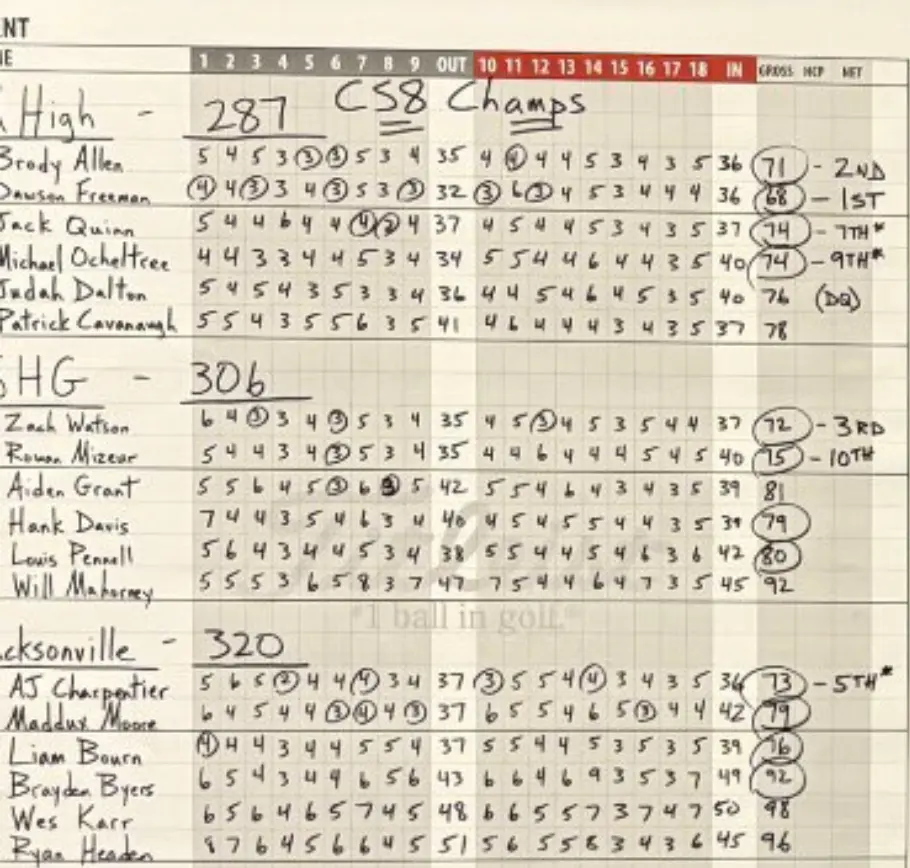 NT
E 1 2 3 4 5 6 7 8 9 OUT 10 11 12 13 14 15 16 17 18 IN GROSS HCP NET
High - 287 CS8 Champs
Brody Allen 5 4 5 3 3 3 5 3 4 35 4 4 4 4 5 3 4 3 5 36 71 - 2ND
Dawson Freeman 4 4 3 3 4 3 5 3 3 32 3 6 3 4 5 3 4 4 4 36 68 - 1ST
Jack Quinn 5 4 4 6 4 4 4 2 4 37 4 5 4 4 5 3 4 3 5 37 74 - 7TH*
Michael Ocheltree 4 4 3 3 4 4 5 3 4 34 5 5 4 4 6 4 4 3 5 40 74 - 9TH*
Judah Dalton 5 4 5 4 3 5 3 3 4 36 4 4 5 4 6 4 5 3 5 40 76 (DQ)
Patrick Cavanaugh 5 5 4 3 5 5 6 3 5 41 4 6 4 4 4 3 4 3 5 37 78
SHG - 306
Zach Watson 6 4 3 3 4 3 5 3 4 35 4 5 3 4 5 3 5 4 4 37 72 - 3RD
Rowan Mizeur 5 4 4 3 4 3 5 3 4 35 4 4 6 4 4 4 5 4 5 40 75 - 10TH
Aiden Grant 5 5 6 4 5 3 6 3 5 42 5 5 4 6 4 3 4 3 5 39 81
Hank Davis 7 4 4 3 5 4 6 3 4 40 4 5 4 5 5 4 4 3 5 39 79
Louis Pennell 5 6 4 3 4 4 5 3 4 38 5 5 4 4 5 4 6 3 6 42 80
Will Mahorney 5 5 5 3 6 5 8 3 7 47 7 5 4 4 6 4 7 3 5 45 92
"1 ball in golf."
cksonville - 320
AJ Charpentier 5 6 5 2 4 4 4 3 4 37 3 5 5 4 4 3 4 3 5 36 73 - 5TH*
Maddux Moore 6 4 5 4 4 3 4 4 3 37 6 5 5 4 6 5 3 4 4 42 79
Liam Bourn 4 4 4 3 4 4 5 5 4 37 5 5 4 4 5 3 5 3 5 39 76
Brayden Byers 6 5 4 3 4 4 6 5 6 43 6 6 4 6 9 3 5 3 7 49 92
Wes Karr 6 5 6 4 6 5 7 4 5 48 6 6 5 5 7 3 7 4 7 50 98
Ryan Headen 8 7 6 4 5 6 6 4 5 51 5 6 5 5 8 3 4 3 6 45 96